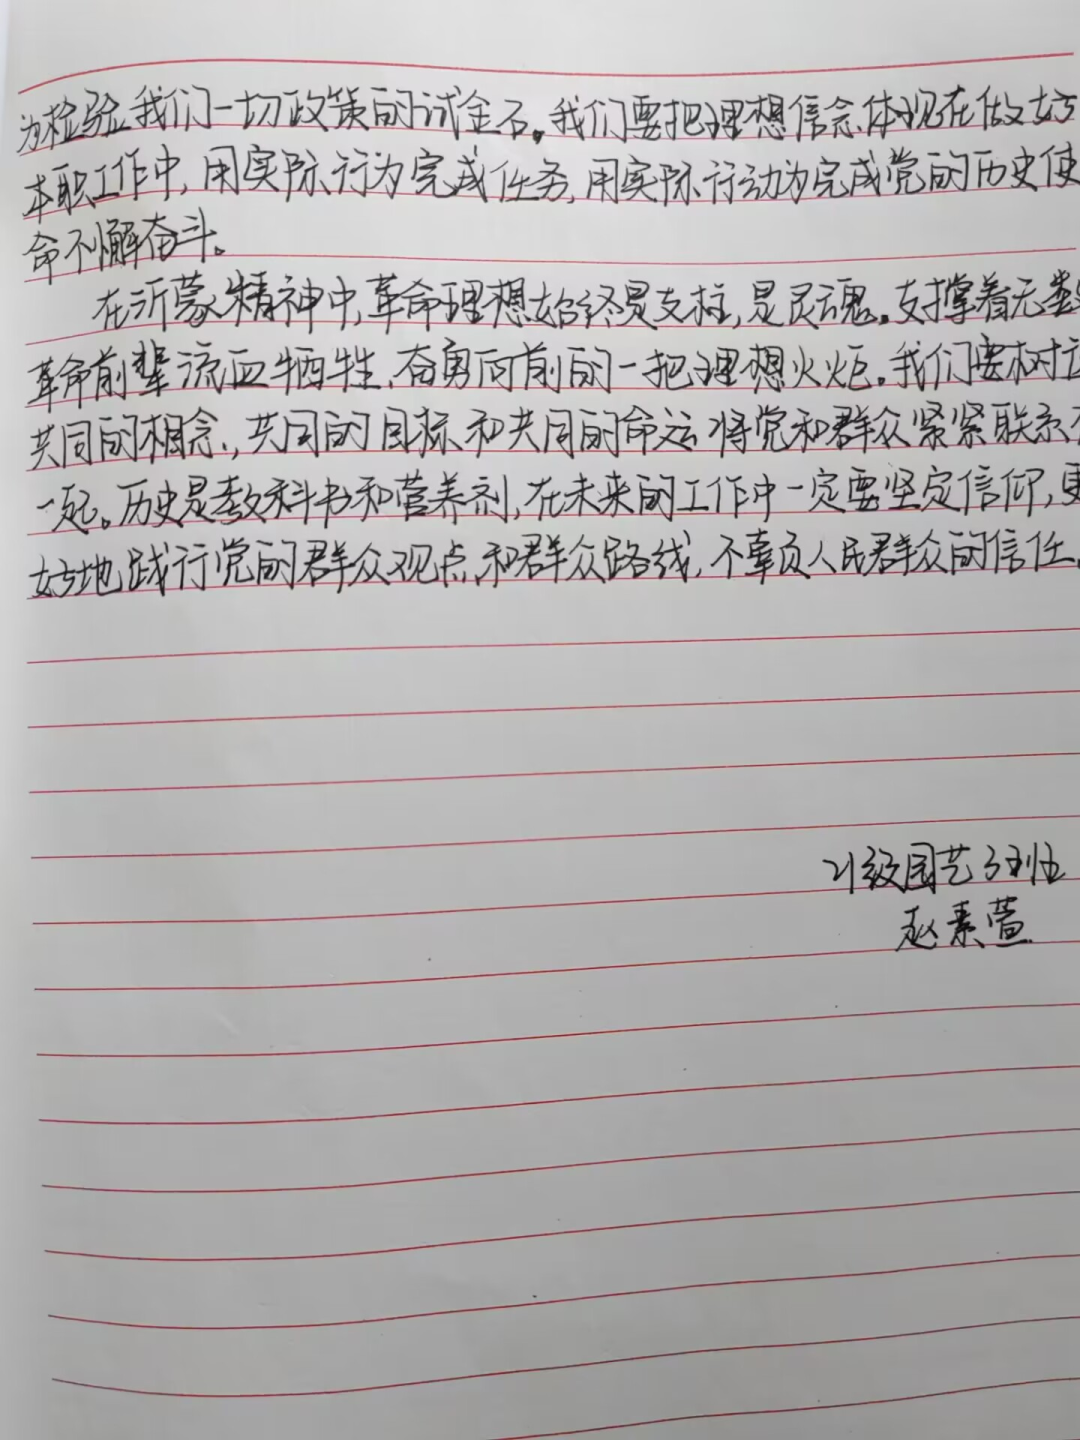 为检验我们一切政策的试金石。我们要把理想信念体现在做好
本职工作中,用实际行为完成任务,用实际行动为完成党的历史使
命不懈奋斗。
在沂蒙精神中,革命理想始终是支柱,是灵魂。支撑着无数
革命前辈流血牺牲、奋勇向前的一把理想火炬。我们要树立
共同的相念,共同的目标和共同的命运将党和群众紧紧联系在
一起。历史是教科书和营养剂,在未来的工作中一定要坚定信仰,更
好地践行党的群众观点和群众路线,不辜负人民群众的信任。
21级园艺3班
赵素萱